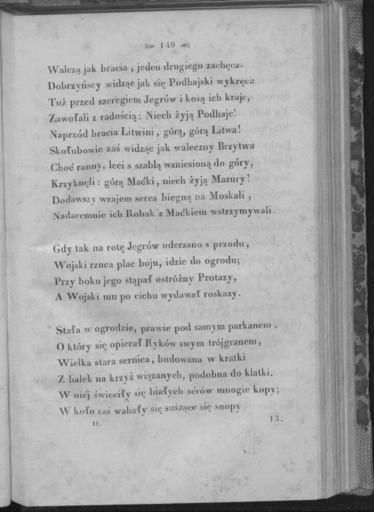 149
Walczą jak bracia, jeden drugiego zachęca.
Dobrzyńscy widząc jak się Podhajski wykręca
Tuż przed szeregiem Jegrów i kosą ich kraje,
Zawołali z radością: Niech żyją Podhaje!
Naprzód bracia Litwini, górą, górą Litwa!
Skołubowie zaś widząc jak waleczny Brzytwa
Choć ranny, leci s szablą wzniesioną do góry,
Krzyknęli: górą Maćki, niech żyją Mazury!
Dodawszy wzajem serca biegną na Moskali,
Nadaremnie ich Robak z Maćkiem wstrzymywali.
Gdy tak na rotę Jegrów uderzano s przodu,
Wojski rzuca plac boju, idzie do ogrodu;
Przy boku jego stąpał ostróżny Protazy,
A Wojski mu po cichu wydawał roskazy.
Stała w ogrodzie, prawie pod samym parkanem,
O który się opierał Ryków swym trójgranem,
Wielka stara sernica, budowana w kratki
Z balek na krzyż wiązanych, podobna do klatki.
W niéj święciły się białych sérów mnogie kopy;
W koło zaś wahały się suszące się snopy
II. 13.